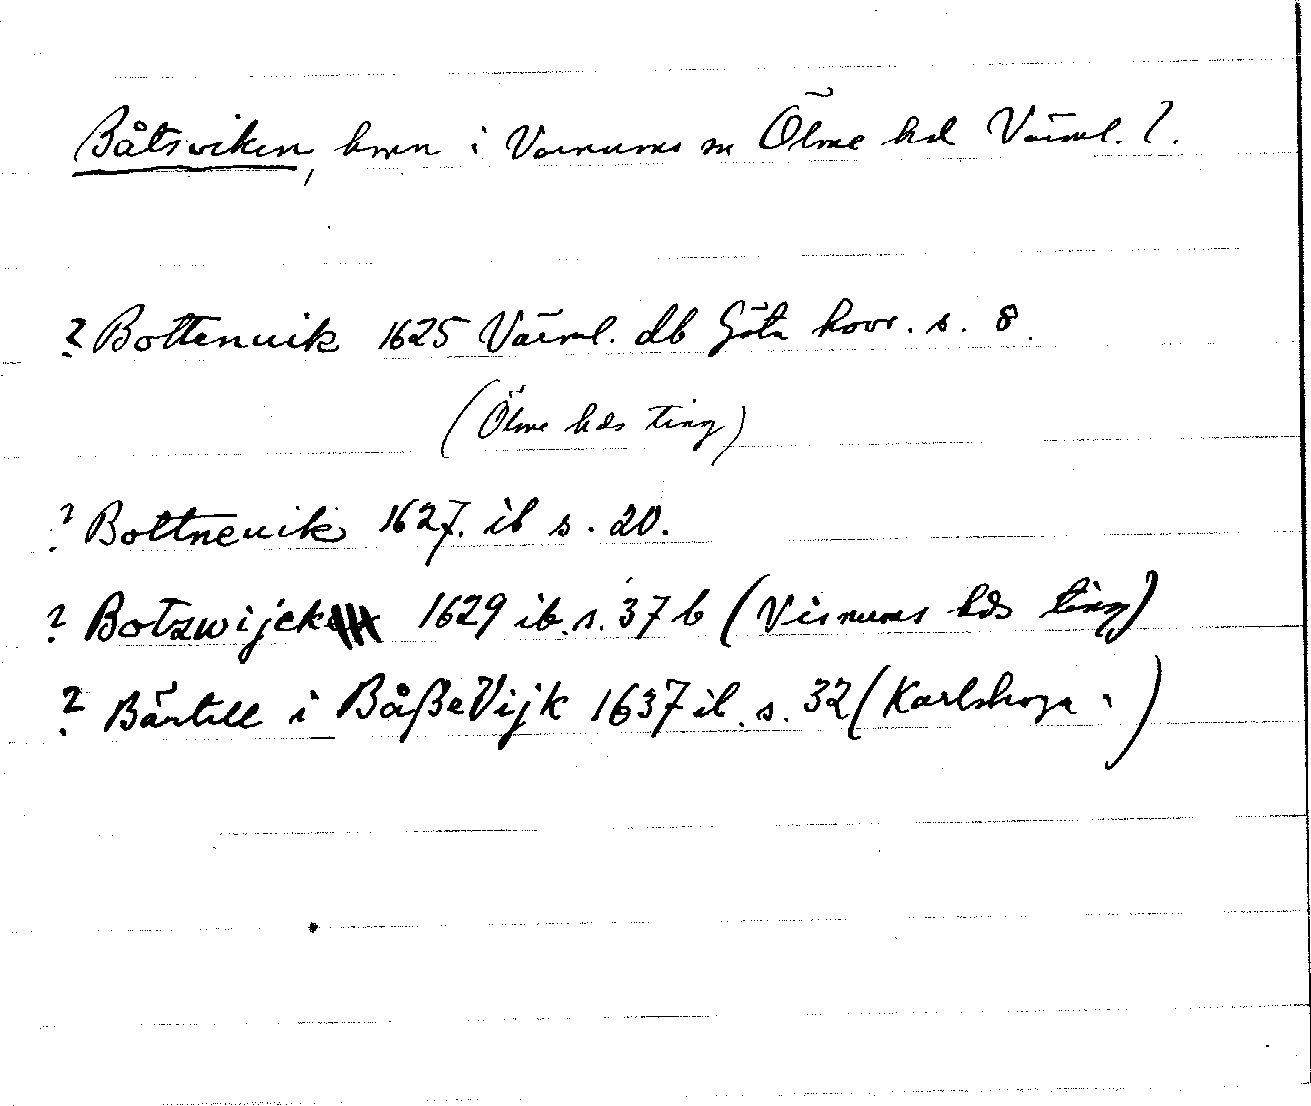 Båtsviken, hmn i Varnums sn Ölme hd Värml. ?.
? Bottenuik 1625 Värml. db Göta hovr. s. 8.
(Ölme hds ting)
? Bottneuik 1627. ib s. 20.
? Botzwijck 1629 ib. s. 37 b (Visnums hds ting)
? Bäntell i BåßeVijk 1637 ib. s. 32 (Karlskoga " )